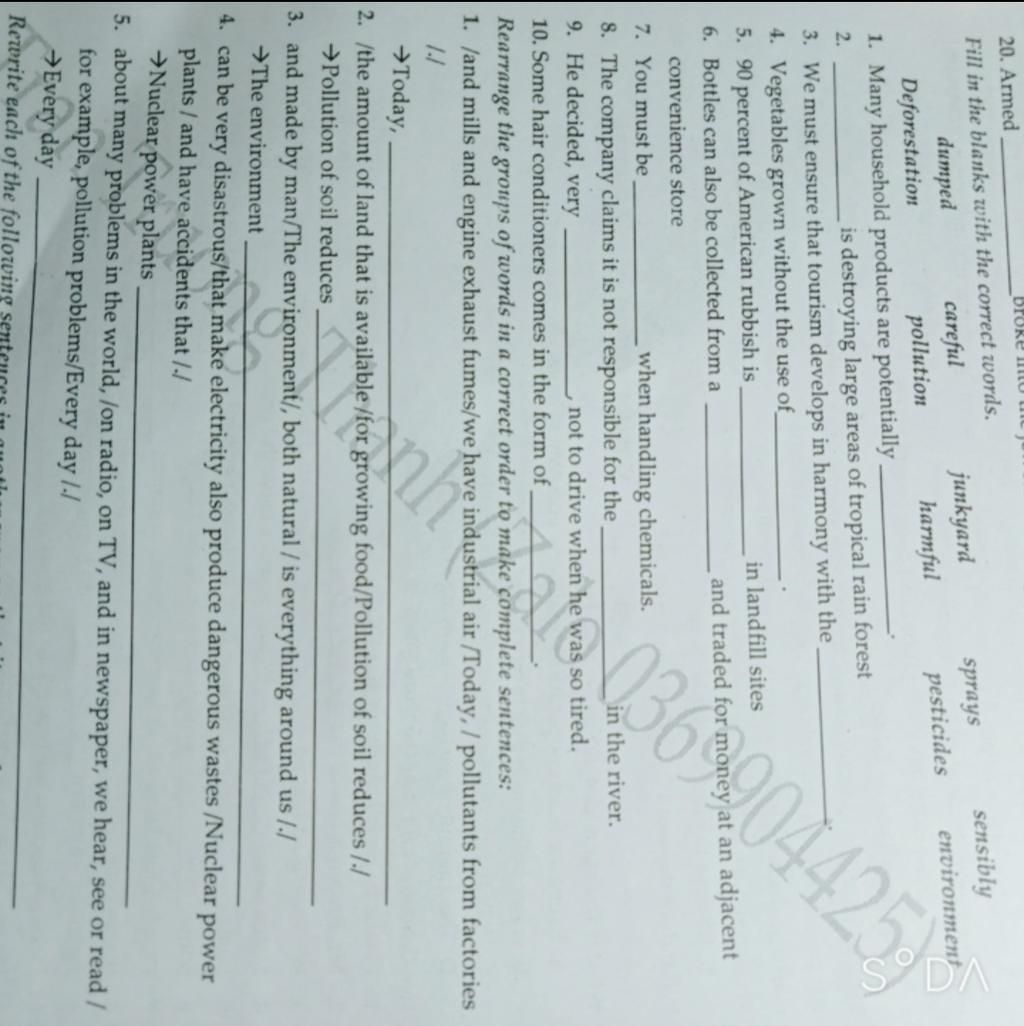 20. Armed ____________ broke into the
Fill in the blanks with the correct words.
dumped careful junkyard sprays sensibly
Deforestation pollution harmful pesticides environment
1. Many household products are potentially ____________.
2. ____________ is destroying large areas of tropical rain forest
3. We must ensure that tourism develops in harmony with the ____________.
4. Vegetables grown without the use of ____________.
5. 90 percent of American rubbish is ____________ in landfill sites
6. Bottles can also be collected from a ____________ and traded for money at an adjacent
convenience store
7. You must be ____________ when handling chemicals.
8. The company claims it is not responsible for the ____________ in the river.
9. He decided, very ____________, not to drive when he was so tired.
10. Some hair conditioners comes in the form of ____________.
Rearrange the groups of words in a correct order to make complete sentences:
1. /and mills and engine exhaust fumes/we have industrial air /Today, / pollutants from factories
/./
→Today, ____________
2. /the amount of land that is available /for growing food/Pollution of soil reduces /./
→Pollution of soil reduces ____________
3. and made by man/The environment/, both natural / is everything around us /./
→The environment ____________
4. can be very disastrous/that make electricity also produce dangerous wastes /Nuclear power
plants / and have accidents that /./
→Nuclear power plants ____________
5. about many problems in the world, /on radio, on TV, and in newspaper, we hear, see or read /
for example, pollution problems/Every day /./
→Every day ____________
Rewrite each of the following sentences in another
Trang Tranh (Zalo 0369904425)
SODA